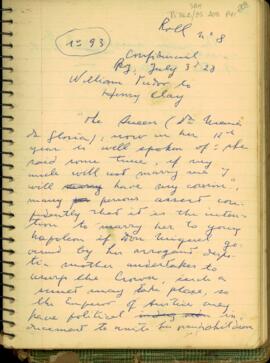 Roll nº 8
1º 93
Confidencial
Rj, July 3º 28
William Tudor to
Henry Clay
"The Queen (Dª Maria
da Gloria), now in her 10th
year is well spoken of: she
said some time, if my
uncle will not marry me I
will have my crown,
many persons assert con-
fidently that it is the inten-
tion to marry her to young
Napoleon if Don Miguel go-
verned by his arrogant despo-
tic mother undertakes to
usurp the Crown, such a
must may take place, so
the Emperor of Austria may
have political in-
ducement to unite his grandchildren